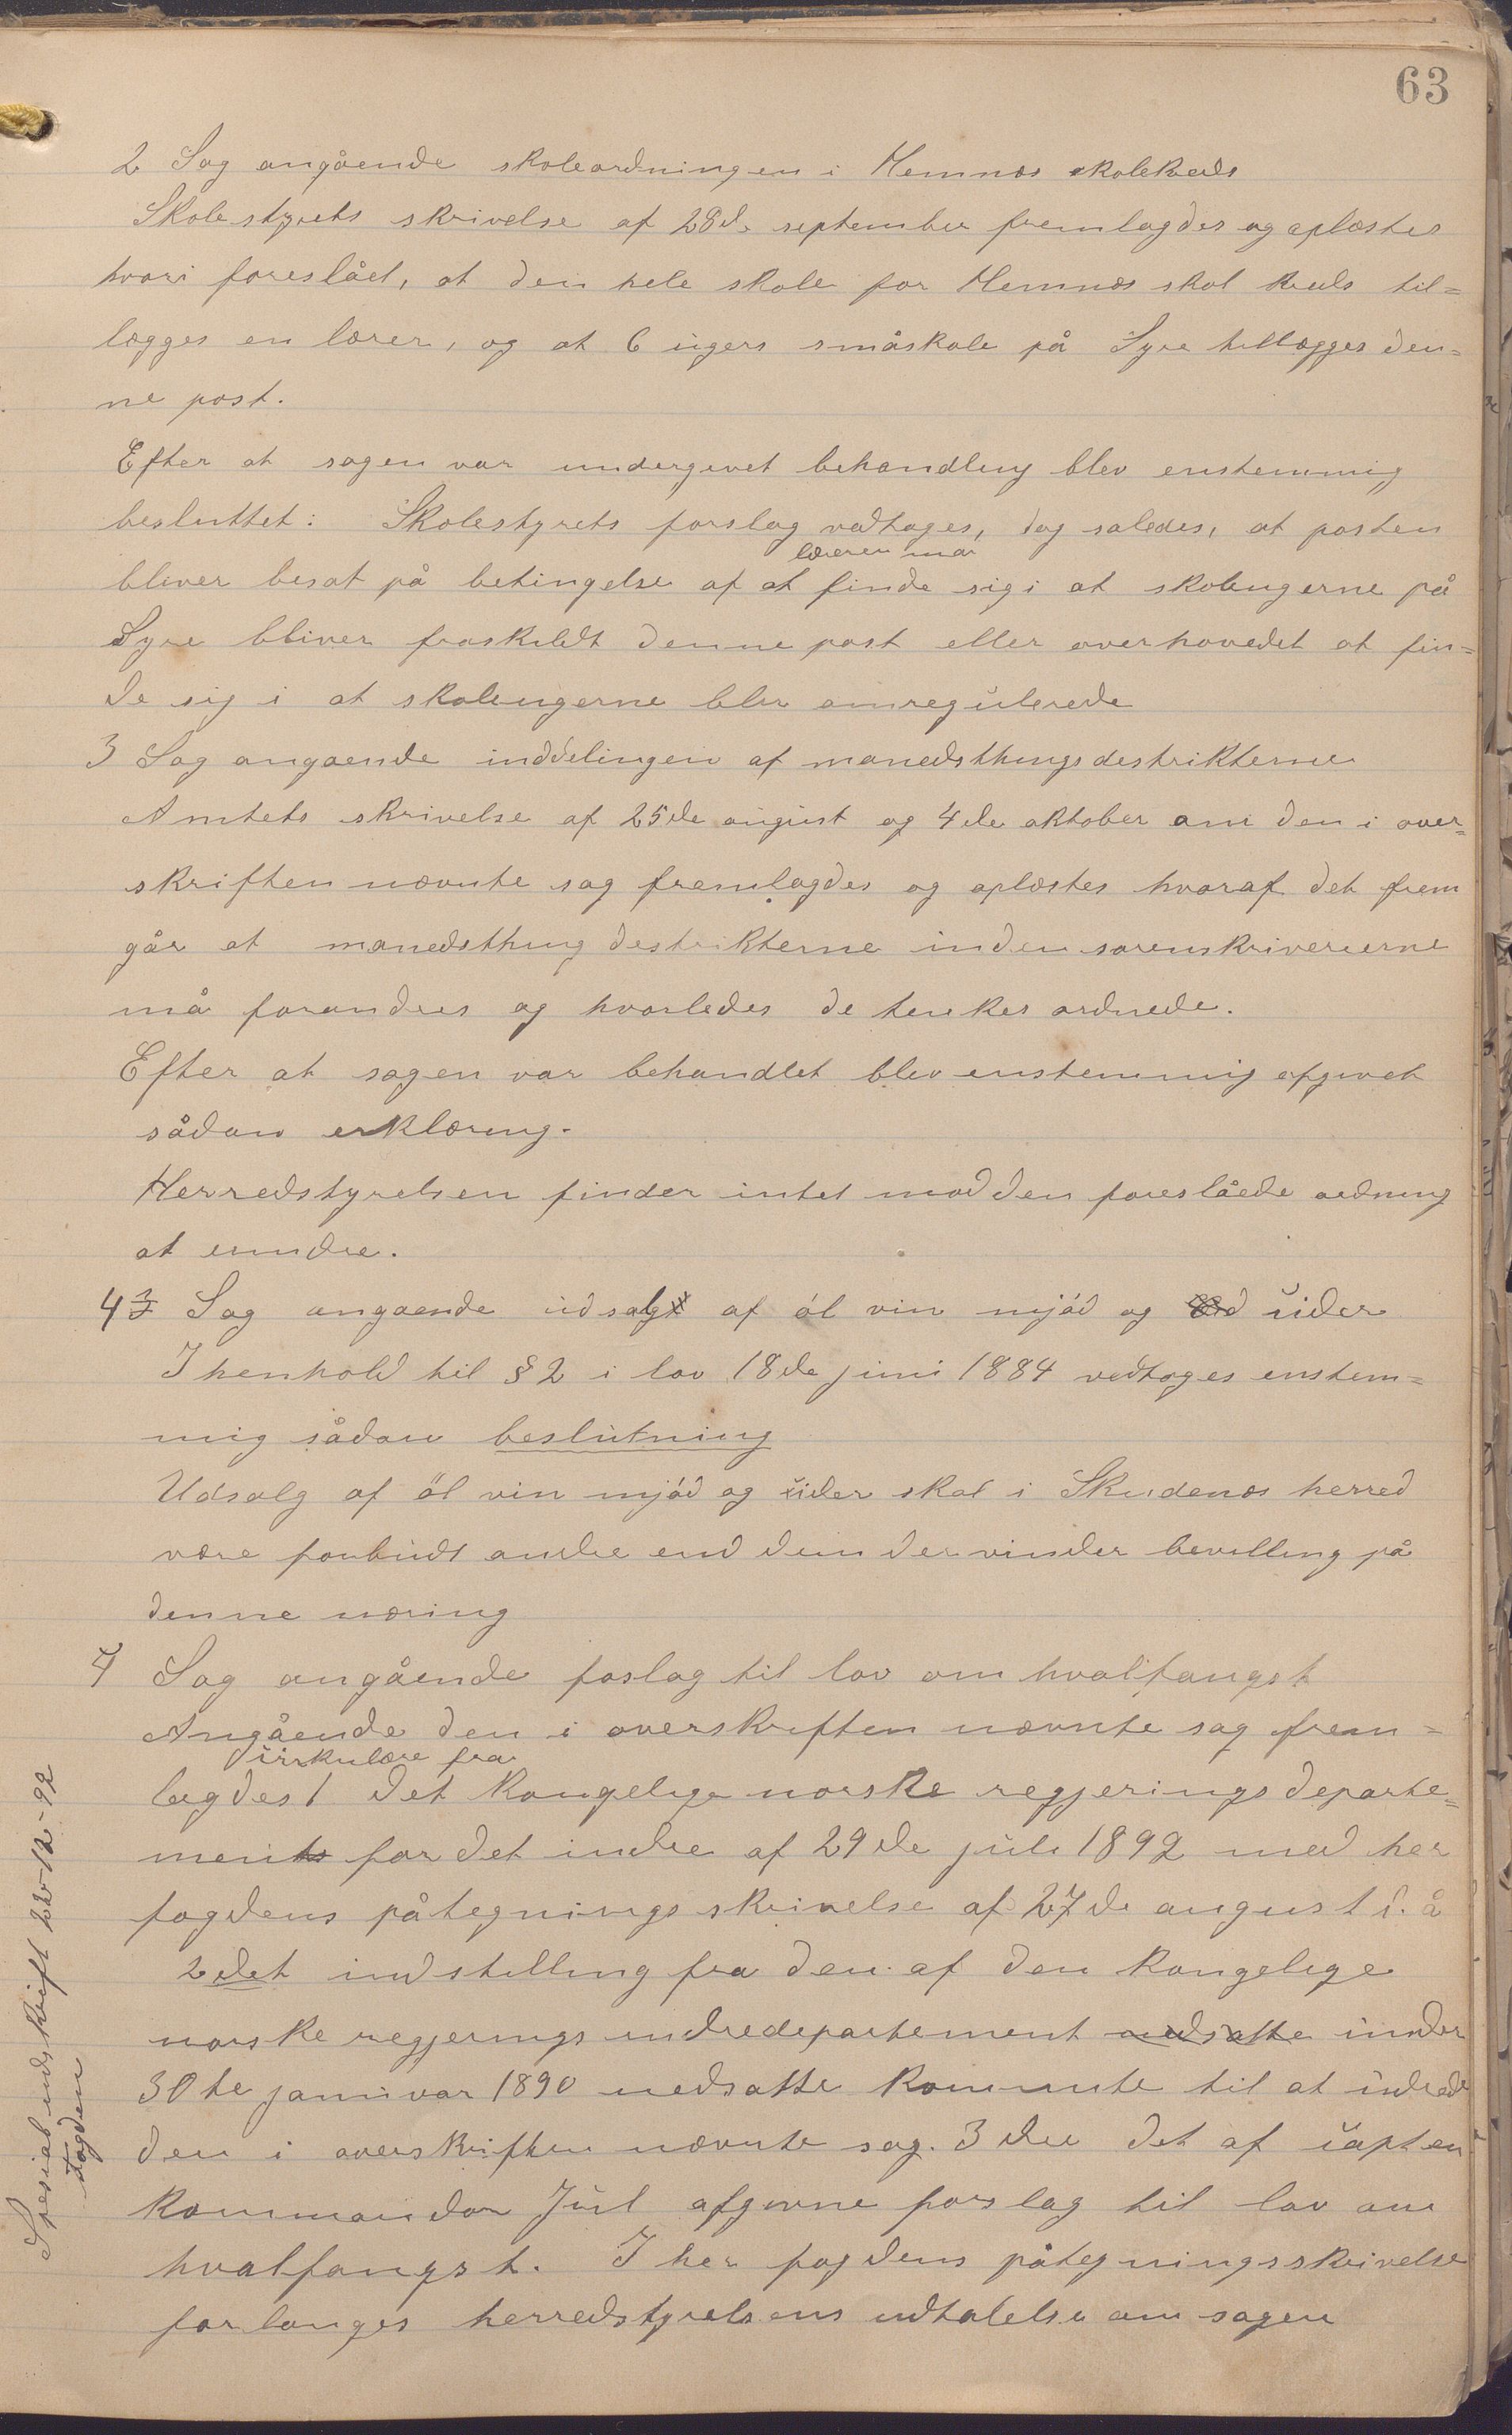 63
2 Sag angående skoleordningen i Hemnæs skolekreds
Skolestyrets skrivelse af 28de september fremlagdes og oplæstes
hvori foreslået, at den hele skole for Hemnæs skol kreds til=
lægges en lærer, og at 6 ugers småskole på Syre tillægges den=
ne post.
Efter at sagen var undergivet behandling blev enstemmig
besluttet: Skolestyrets forslag vedtages, dog saledes, at posten
læreren maa
bliver besat på betingelse af at finde sig i at skoleugerne på
Syre bliver fraskildt denne post eller overhovedet at fin=
de sig i at skoleugerne blir omregulerede
3 Sag angaende inddelingen af manedsthingsdestrikterne
Amtets skrivelse af 25de august og 4de oktober om den i over=
skriften nævnte sag fremlagdes og oplæstes hvoraf det frem
går at manedsthing destrikterne inden sorenskriverierne
må forandres og hvorledes de tenkes ordnede.
Efter at sagen var behandlet blev enstemmig afgivet
sådan erklæring.
Herredstyrelsen finder intet mod den foreslåede ordning
at erindre.
4 Sag angaende udsalg af øl vin mjød og cider
I henhold til § 2 i lov 18de juni 1884 vedtoges enstem=
mig sådan beslutning
Udsalg af øl vin mjød og cider skal i Skudenæs herred
være forbudt andre end dem der vinder bevilling på
denne næring
Sag angående foslag til lov om hvalfangst
Angående den i overskriften nævnte sag frem=
cirkulære fra
lagdes 1 det kongelige norske regjerings departe=
ment for det indre af 29de juli 1892 med her
fogdens påtegnings skrivelse af 27de august d. å
2det indstilling fra den af den kongelige
norske regjerings indredepartement nedsatte under
30te januar 1890 nedsatte komite til at udrede
den i overskriften nævnte sag. 3die det af capten
kommandør Jul afgivne forslag til lov om
hvalfangst. I her fogdens påtegningsskrivelse
forlanges herredstyrelsens udtalelse om sagen
Spesial udskrift 22-12-92
fogden